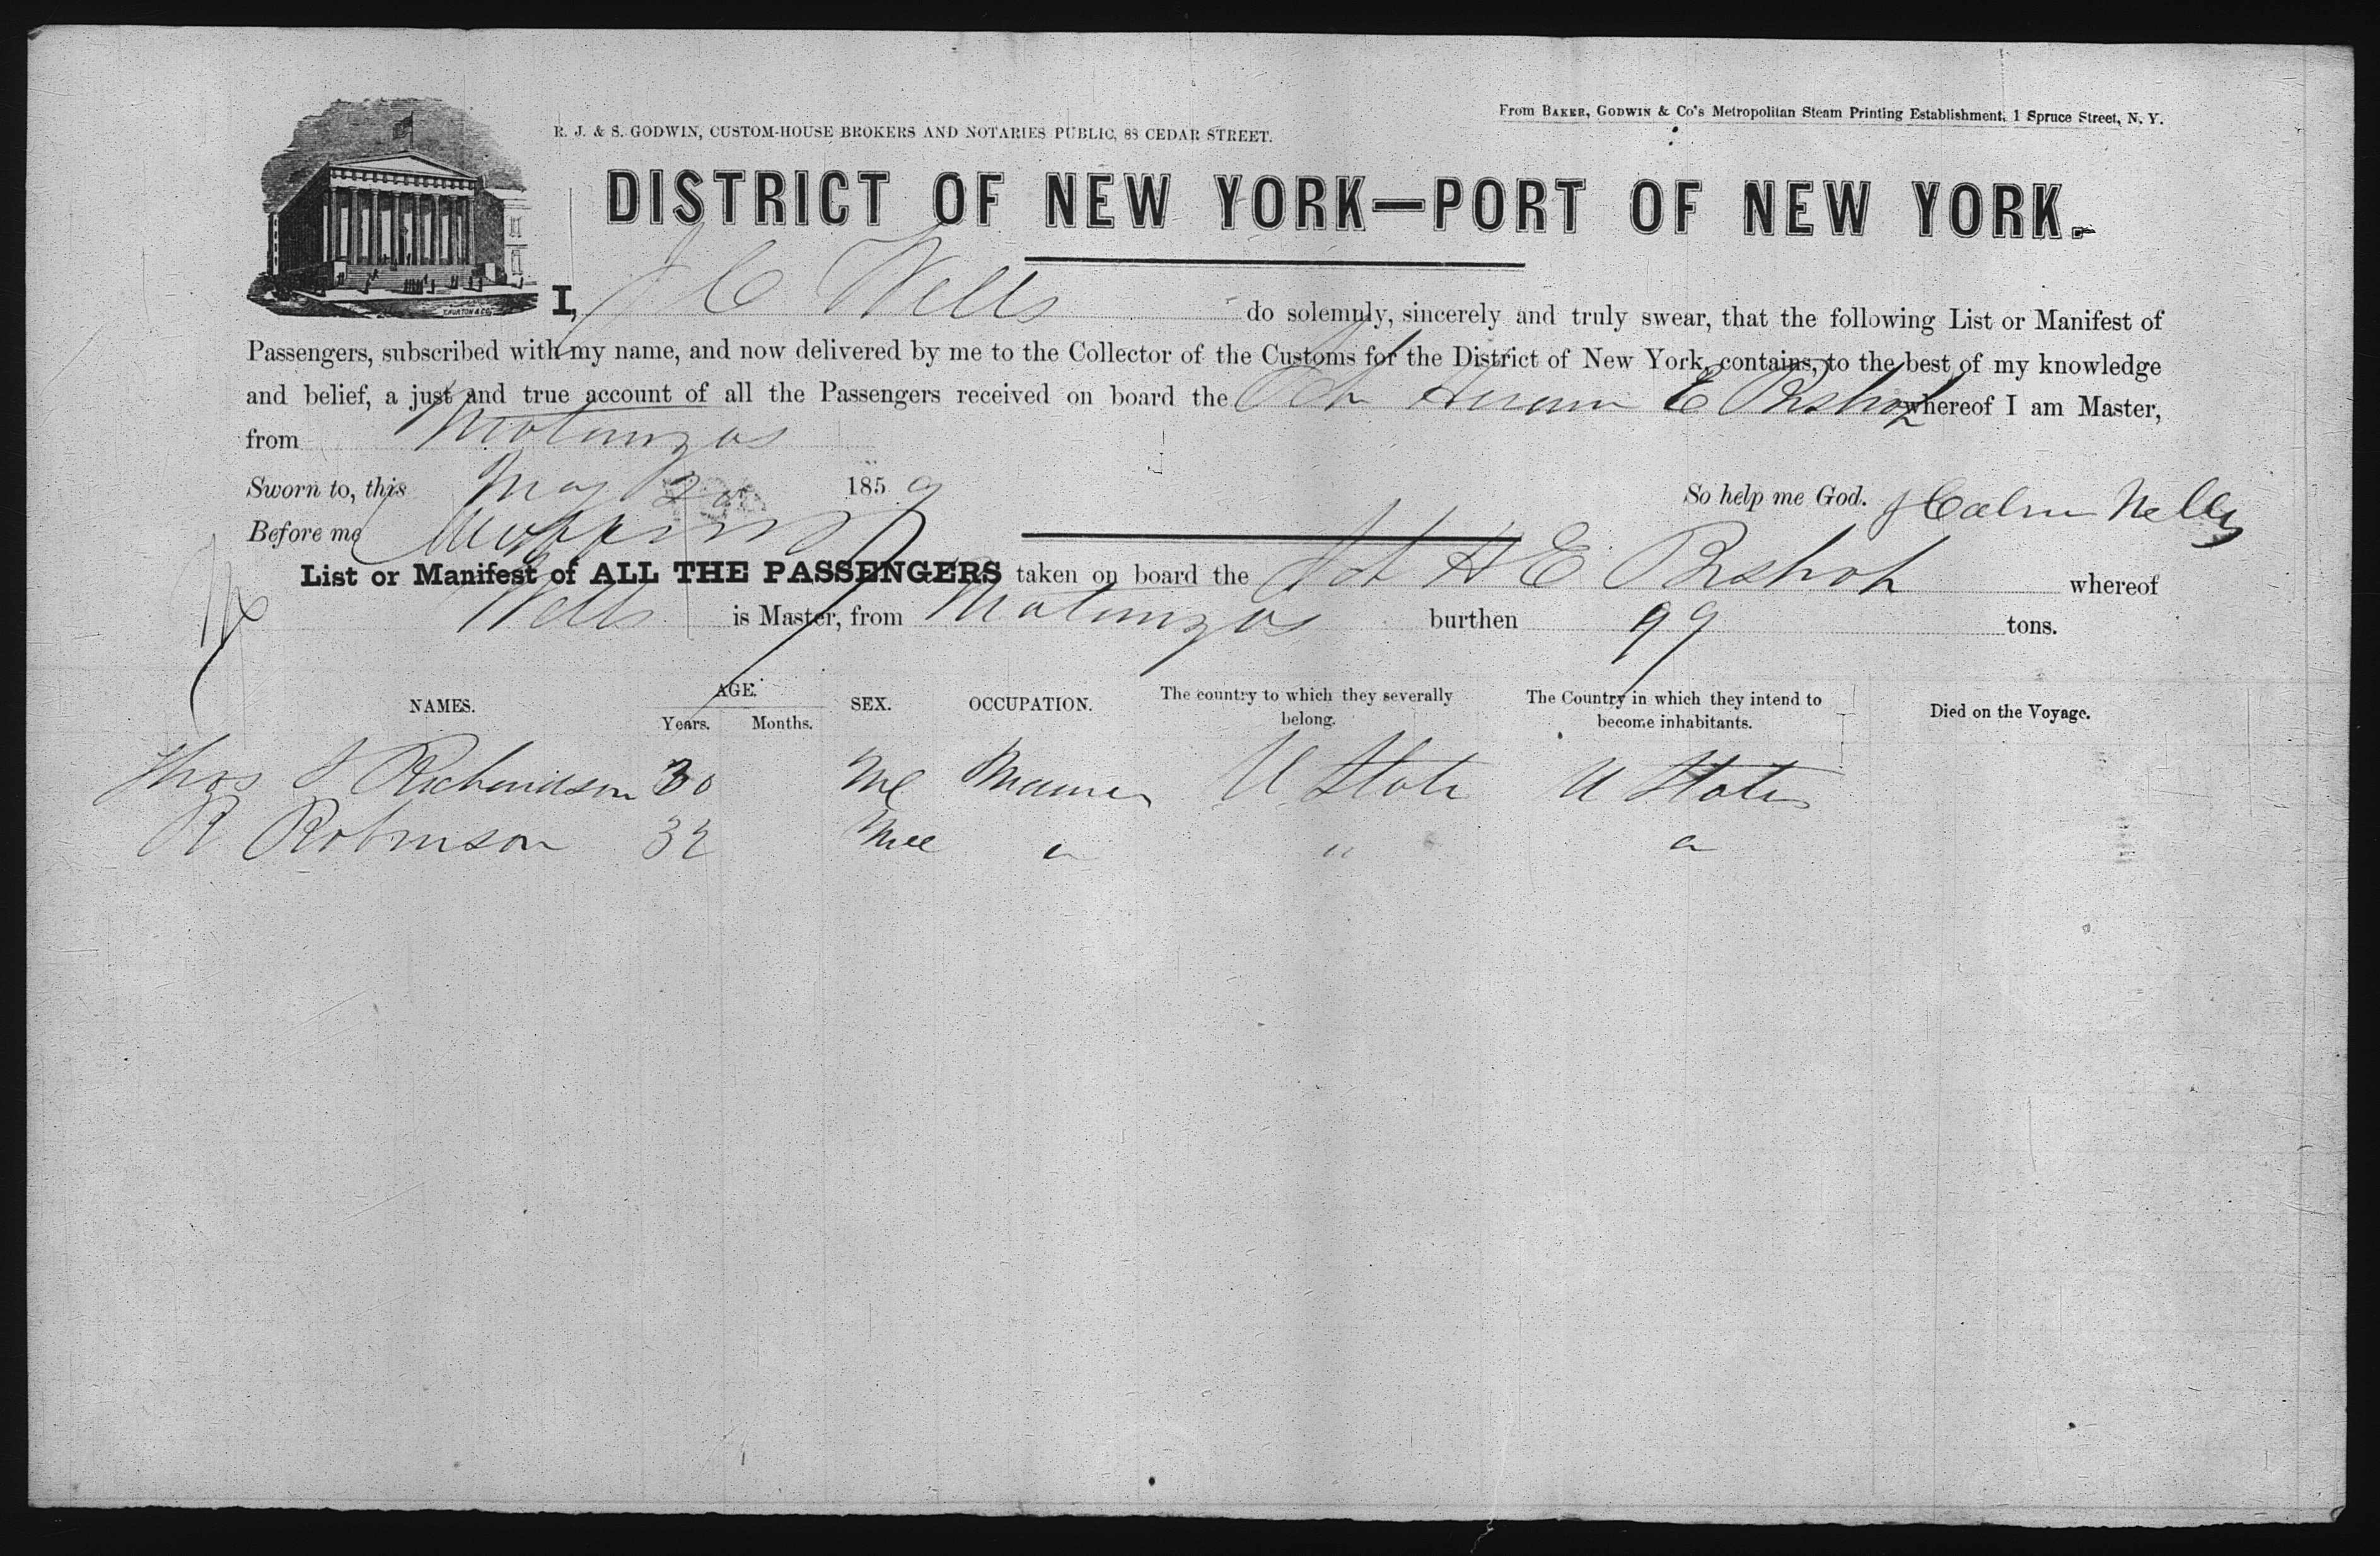 From BAKER, GODWIN & Co's Metropolitan Steam Printing Establishment, 1 Spruce Street, N. Y.
R. J. & S. GODWIN, CUSTOM-HOUSE BROKERS AND NOTARIES PUBLIC, 88 CEDAR STREET.
DISTRICT OF NEW YORK—PORT OF NEW YORK.
I, J C Wells do solemnly, sincerely and truly swear, that the following List or Manifest of
Passengers, subscribed with my name, and now delivered by me to the Collector of the Customs for the District of New York, contains, to the best of my knowledge
and belief, a just and true account of all the Passengers received on board the Sch Hiram E Bishop whereof I am Master,
from Matanzas
Sworn to, this May 1859 So help me God. J Calvin Wells
Before me
List or Manifest of ALL THE PASSENGERS taken on board the Sch H E Bishop whereof
Wells is Master, from Matanzas burthen 99 tons.
NAMES. AGE. Years. Months. SEX. OCCUPATION. The country to which they severally belong. The Country in which they intend to become inhabitants. Died on the Voyage.
Thos S Richardson 30 Ml Mariner U State U States
R Robinson 32 Male " " "